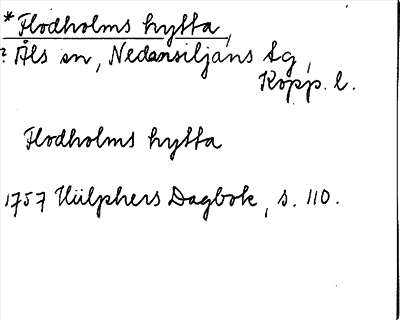 *Flodholms hytta,
? Åls sn, Nedansiljans tg,
Kopp. l.
Flodholms hytta
1757 Hülphers Dagbok, s. 110.